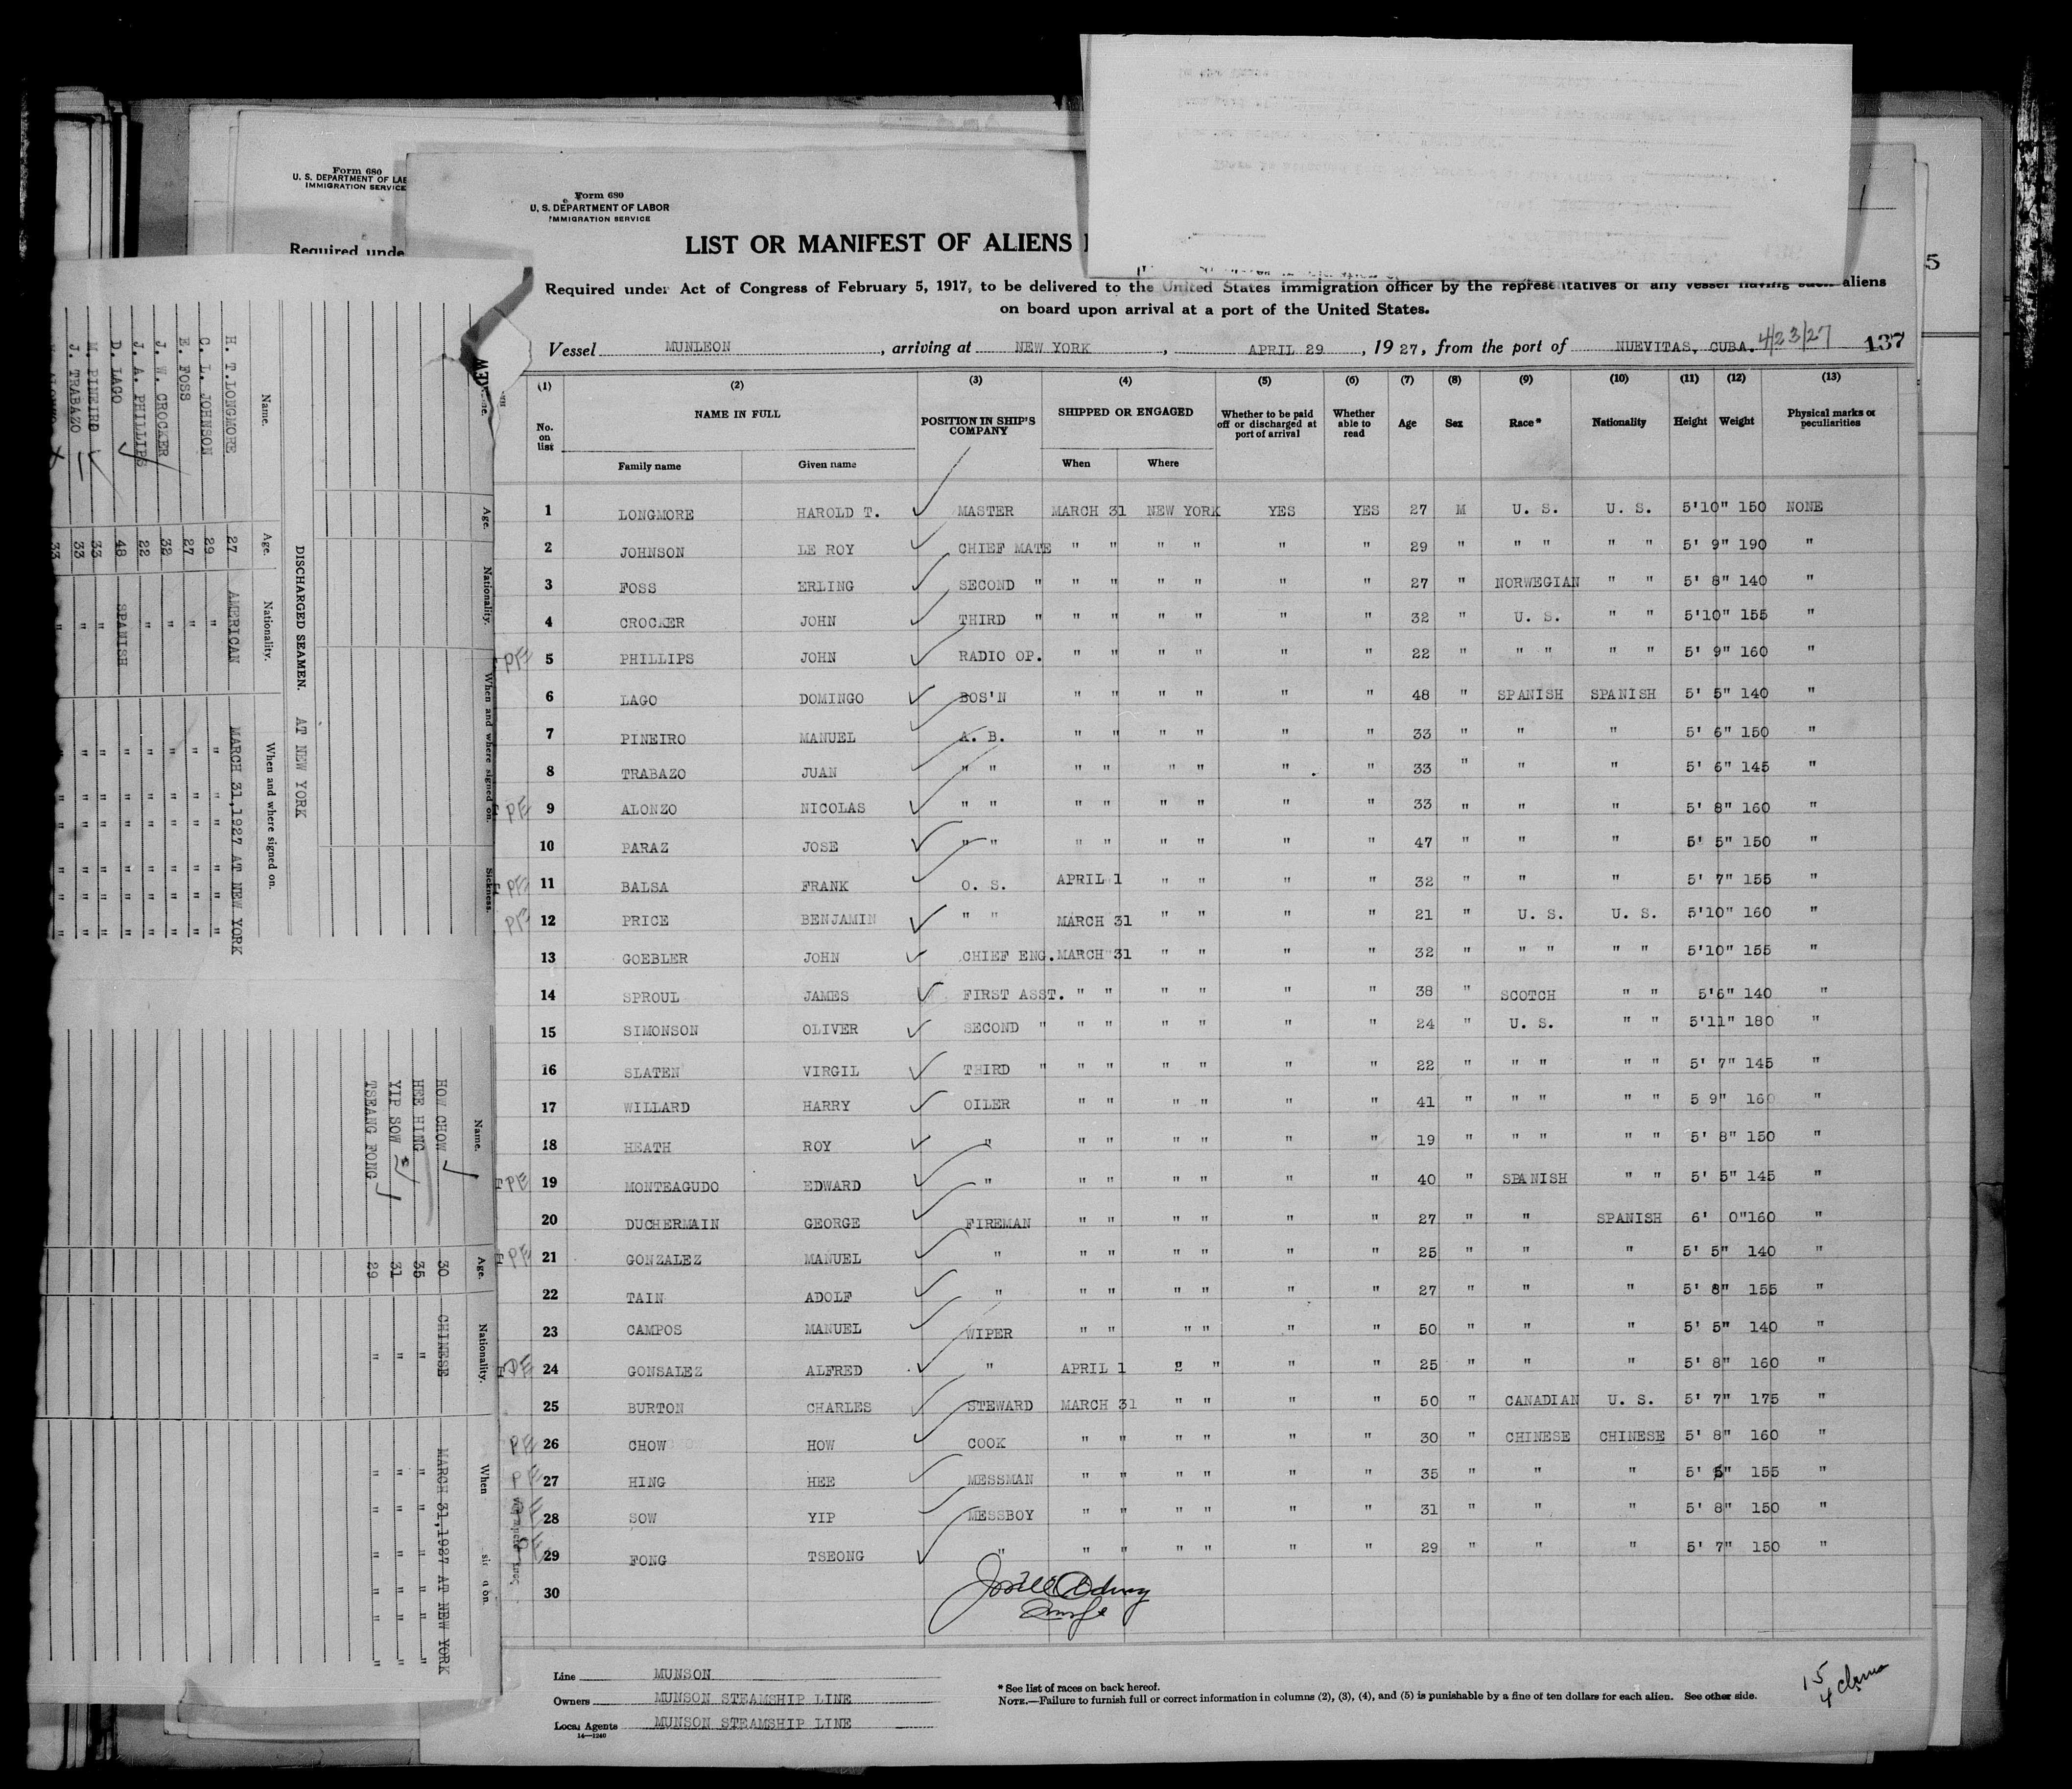 Form 680
U. S. DEPARTMENT OF LAB
IMMIGRATION SERVICE
Required unde
Form 680
U. S. DEPARTMENT OF LABOR
IMMIGRATION SERVICE
LIST OR MANIFEST OF ALIENS
5
Required under Act of Congress of February 5, 1917, to be delivered to the United States immigration officer by the representatives of any vessel having such aliens
on board upon arrival at a port of the United States.
Vessel MUNLEON, arriving at NEW YORK, APRIL 29, 1927, from the port of NUEVITAS, CUBA. 4/23/27 137
(1) (2) (3) (4) (5) (6) (7) (8) (9) (10) (11) (12) (13)
No. on list NAME IN FULL POSITION IN SHIP'S COMPANY SHIPPED OR ENGAGED Whether to be paid off or discharged at port of arrival Whether able to read Age Sex Race* Nationality Height Weight Physical marks or peculiarities
Family name Given name When Where
1 LONGMORE HAROLD T. MASTER MARCH 31 NEW YORK YES YES 27 M U. S. U. S. 5'10" 150 NONE
2 JOHNSON LE ROY CHIEF MATE " " " " " " 29 " " " " " 5' 9" 190 "
3 FOSS ERLING SECOND " " " " " " " 27 " NORWEGIAN " " 5' 8" 140 "
4 CROCKER JOHN THIRD " " " " " " " 32 " U. S. " " 5'10" 155 "
PE 5 PHILLIPS JOHN RADIO OP. " " " " " " 22 " " " " " 5' 9" 160 "
6 LAGO DOMINGO BOS'N " " " " " " 48 " SPANISH SPANISH 5' 5" 140 "
7 PINEIRO MANUEL A. B. " " " " " " 33 " " " 5' 6" 150 "
8 TRABAZO JUAN " " " " " " " " 33 " " " 5' 6" 145 "
PE 9 ALONZO NICOLAS " " " " " " " " 33 " " " 5' 8" 160 "
10 PARAZ JOSE " " " " " " " " 47 " " " 5' 5" 150 "
PE 11 BALSA FRANK O. S. APRIL 1 " " " " 32 " " " 5' 7" 155 "
PE 12 PRICE BENJAMIN " " MARCH 31 " " " " 21 " U. S. U. S. 5'10" 160 "
13 GOEBLER JOHN CHIEF ENG. MARCH 31 " " " " 32 " " " " " 5'10" 155 "
14 SPROUL JAMES FIRST ASST. " " " " " " 38 " SCOTCH " " 5'6" 140 "
15 SIMONSON OLIVER SECOND " " " " " " " 24 " U. S. " " 5'11" 180 "
16 SLATEN VIRGIL THIRD " " " " " " " 22 " " " " " 5' 7" 145 "
17 WILLARD HARRY OILER " " " " " " 41 " " " " " 5 9" 160 "
18 HEATH ROY " " " " " " " 19 " " " " " 5' 8" 150 "
PE 19 MONTEAGUDO EDWARD " " " " " " " 40 " SPANISH " " 5' 5" 145 "
20 DUCHERMAIN GEORGE FIREMAN " " " " " " 27 " " SPANISH 6' 0" 160 "
PE 21 GONZALEZ MANUEL " " " " " " " 25 " " " 5' 5" 140 "
22 TAIN ADOLF " " " " " " " 27 " " " 5' 8" 155 "
23 CAMPOS MANUEL WIPER " " " " " " 50 " " " 5' 5" 140 "
PE 24 GONSALEZ ALFRED " APRIL 1 " " " " 25 " " " 5' 8" 160 "
25 BURTON CHARLES STEWARD MARCH 31 " " " " 50 " CANADIAN U. S. 5' 7" 175 "
PE 26 CHOW HOW COOK " " " " " " 30 " CHINESE CHINESE 5' 8" 160 "
PE 27 HING HEE MESSMAN " " " " " " 35 " " " 5' " 155 "
PE 28 SOW YIP MESSBOY " " " " " " 31 " " " 5' 8" 150 "
PE 29 FONG TSEONG " " " " " " " 29 " " " 5' 7" 150 "
30
Line MUNSON
Owners MUNSON STEAMSHIP LINE
Local Agents MUNSON STEAMSHIP LINE
14—1240
* See list of races on back hereof.
NOTE.—Failure to furnish full or correct information in columns (2), (3), (4), and (5) is punishable by a fine of ten dollars for each alien. See other side.
15
4
Age. Nationality. When and where signed on. Sickness.
DISCHARGED SEAMEN. AT NEW YORK
Name. Age. Nationality. When and where signed on.
H. T. LONGMORE 27 AMERICAN MARCH 31, 1927 AT NEW YORK
C. L. JOHNSON 29 " " " " " " "
E. FOSS 27 " " " " " " "
J. W. CROCKER 32 " " " " " " "
J. A. PHILLIPS 22 " " " " " " "
D. LAGO 48 SPANISH " " " " " "
M. PINEIRO 33 " " " " " " "
J. TRABAZO 33 " " " " " " "
33 " " " " " " "
Name. Age. Nationality. When
HOW CHOW 30 CHINESE MARCH 31, 1927 AT NEW YORK
HEE HING 35 " " " " " " "
YIP SOW 31 " " " " " " "
TSEANG FONG 29 " " " " " " "